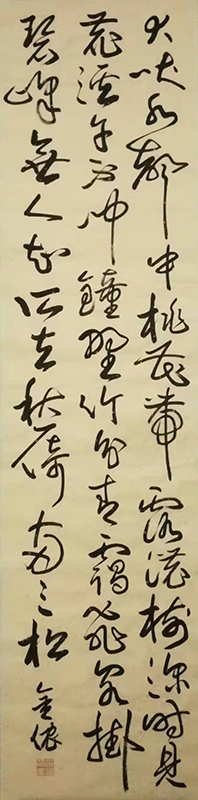 犬吠水聲中桃花帶露濃樹深時見
鹿溪午不聞鐘野竹分青靄飛泉掛
碧峰無人知所去愁倚兩三松
金儂